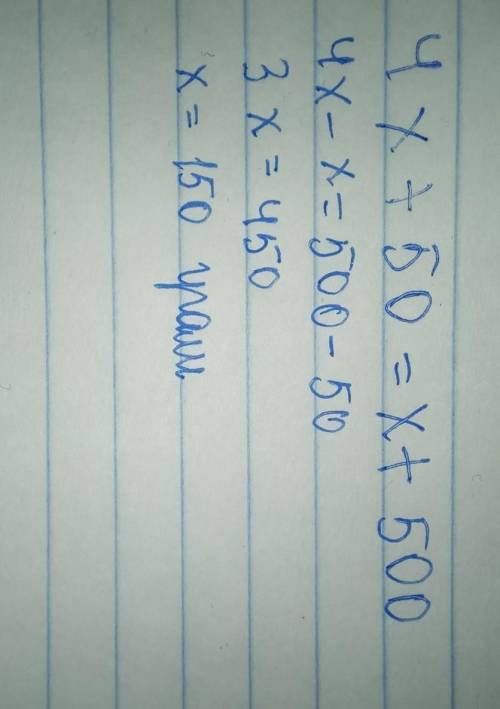 4x + 50 = x + 500
4x - x = 500 - 50
3x = 450
x = 150 грам